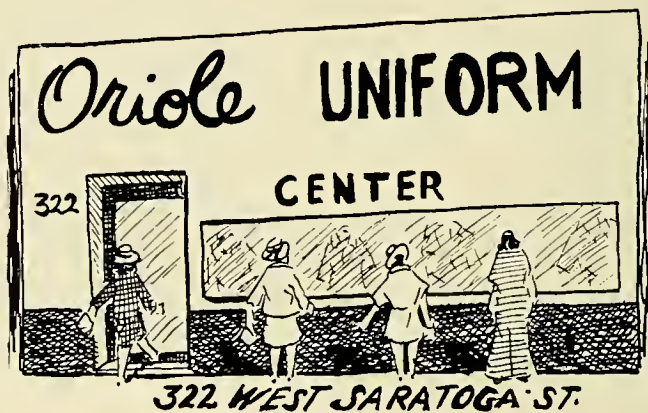 Oriole UNIFORM
CENTER
322
322 WEST SARATOGA ST.